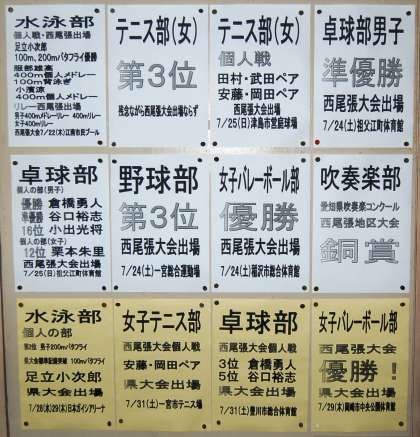 水泳部
個人戦・西尾張出場
足立小次郎
100m、200mバタフライ優勝
服部雄高
400m個人メドレー
100m背泳ぎ
小濱涼
400m個人メドレー
リレー西尾張出場
男子400mメドレーリレー 400mリレー
女子400mリレー
西尾張大会7/22(木)江南市民プール
テニス部(女)
第3位
残念ながら西尾張大会出場ならず
テニス部(女)
個人戦
田村・武田ペア
安藤・岡田ペア
西尾張大会出場
7/25(日)津島市営庭球場
卓球部男子
準優勝
西尾張大会出場
7/24(土)祖父江町体育館
卓球部
個人の部(男子)
優勝 倉橋勇人
準優勝 谷口裕志
16位 小出光将
個人の部(女子)
12位 栗本朱里
西尾張大会出場
7/25(日)祖父江町体育館
野球部
第3位
西尾張大会出場
7/24(土)一宮総合運動場
女子バレーボール部
優勝
西尾張大会出場
7/24(土)稲沢市総合体育館
吹奏楽部
愛知県吹奏楽コンクール
西尾張地区大会
銅賞
水泳部
個人の部
第2位 男子200mバタフライ
県大会標準記録突破 100mバタフライ
足立小次郎
県大会出場
7/28(水)29(木)日本ガイシアリーナ
女子テニス部
西尾張大会個人戦
安藤・岡田ペア
県大会出場
7/31(土)一宮市テニス場
卓球部
西尾張大会個人戦
3位 倉橋勇人
5位 谷口裕志
県大会出場
7/31(土)豊川市総合体育館
女子バレーボール部
西尾張大会
優勝!
県大会出場
7/29(木)岡崎市中央公園体育館